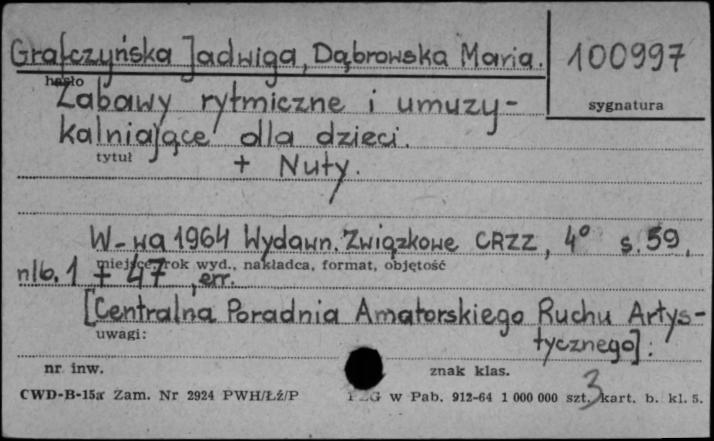 Grafczyńska Jadwiga, Dąbrowska Maria.
100997
hasło
sygnatura
Zabawy rytmiczne i umuzy-
kalniające dla dzieci.
tytuł
+ Nuty.
W-wa 1964 Wydawn. Związkowe CRZZ, 4° s. 59,
miejsce, rok wyd., nakładca, format, objętość
nlb. 1 + 47, err.
[Centralna Poradnia Amatorskiego Ruchu Artys-
uwagi:
tycznego].
nr inw.
znak klas.
3
CWD-B-15a Zam. Nr 2924 PWH/Łź/P
PZG w Pab. 912-64 1 000 000 szt. kart. b. kl. 5.